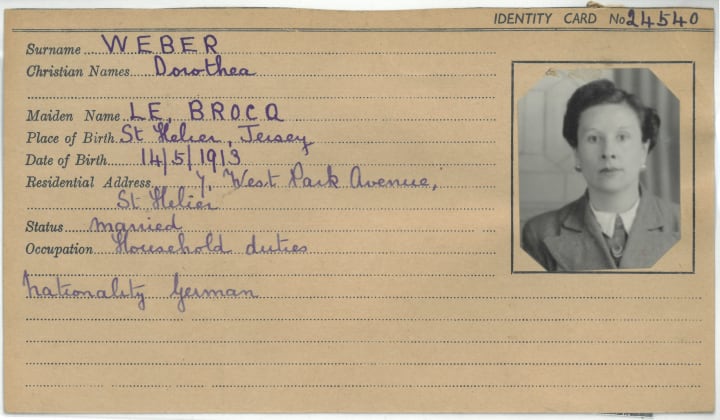 IDENTITY CARD No 24540
Surname WEBER
Christian Names Dorothea
Maiden Name LE, BROCQ
Place of Birth St Helier, Jersey
Date of Birth 14/5/1913
Residential Address 7, West Park Avenue,
St Helier
Status married
Occupation Household duties
Nationality German